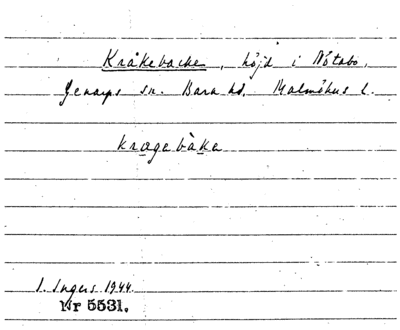 Kråkebacke, höjd i Nötabo,
Genarps sn. Bara hd. Malmöhus l.
krægebàke
I. Ingers 1944.
Nr 5531.